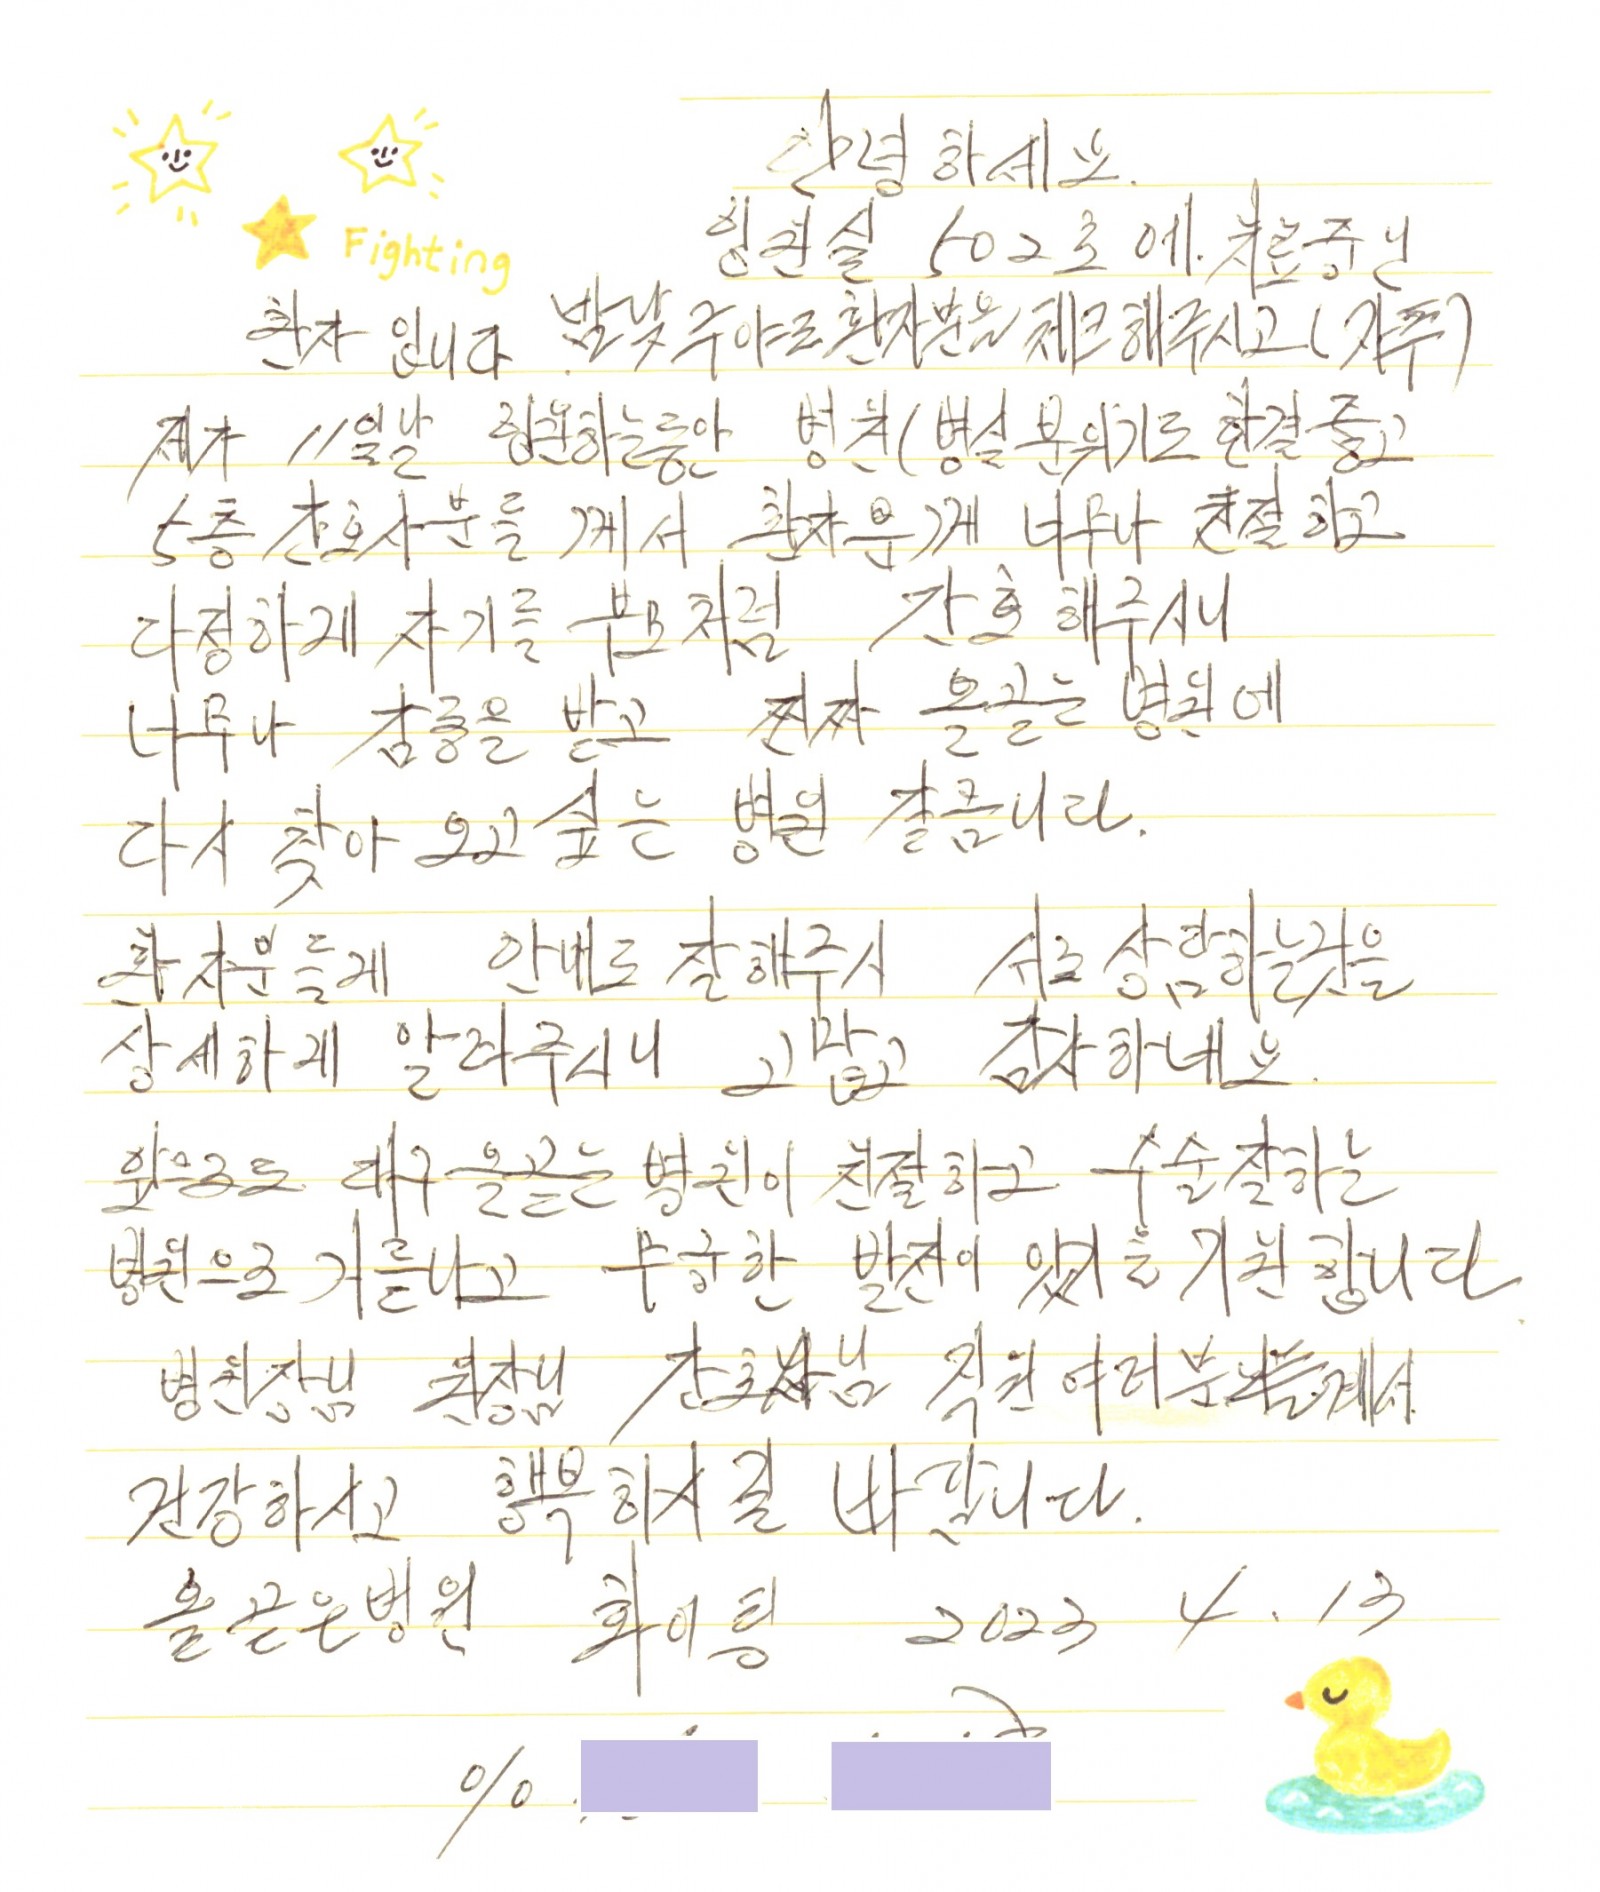 안녕하세요.
입원실 502호에. 치료중인
Fighting
환자 입니다 밤낮 주야로 환자분을 체크해주시고 (자주)
제가 11일날 입원하는동안 병원(병실분위기도 한결좋고
5층 간호사분들 께서 환자분께 너무나 친절하고
다정하게 자기를 부모처럼 간호해주시니
너무나 감동을 받고 진짜 올곧는 병원에
다시 찾아 오고 싶는 병원 갈픔니다.
환자분들게 안내도 잘해주시 서로 상담하는것을
상세하게 알려주시니 고맙고 감사하네요.
앞으로도 대구 올곧는 병원이 친절하고 수술잘하는
병원으로 거듭나고 무궁한 발전이 있기를 기원합니다
병원장님 원장님 간호사님 직원 여러분 께서
건강하시고 행복하시길 바랍니다.
올곧은병원 화이팅 2023 4.13